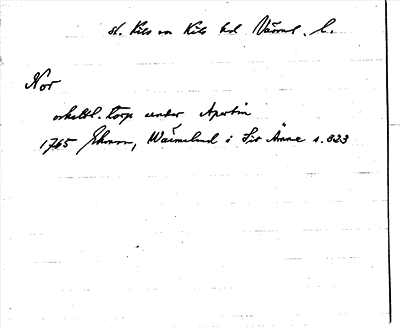 St. Kils sn Kils hd Värml. l.
Nor
torp under Apertin
1765 Ehrnn, Wärmeland i Sit Ämne s. 323